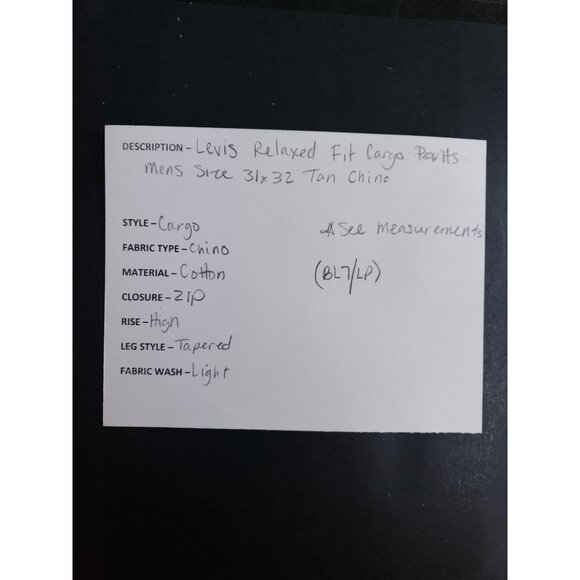 DESCRIPTION - Levis Relaxed Fit Cargo Pants
Mens Size 31x32 Tan Chino
STYLE - Cargo
* See Measurements
FABRIC TYPE - Chino
MATERIAL - Cotton
(BL7/LP)
CLOSURE - Zip
RISE - High
LEG STYLE - Tapered
FABRIC WASH - Light